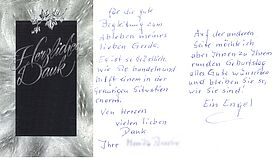 Herzlichen
Dank
für die gute
Begleitung zum
Ableben meines
lieben Gerds.
Es ist so
wie Sie handeln und
hilft einem in der
traurigen Situation
enorm.
Von Herzen
vielen lieben
Dank
Ihre
Auf der anderen
Seite möchte ich
aber Ihnen zu Ihrem
runden Geburtstag
alles Gute wünschen
und bleiben Sie so,
wie Sie sind.
Ein Engel